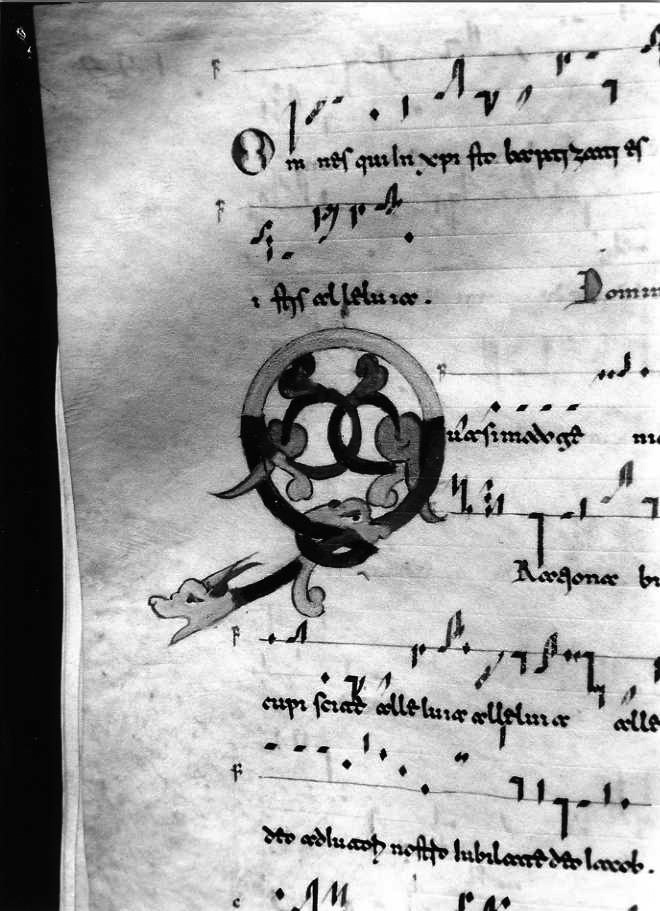 Om nes qui In xpi sto baptizati es
i stis alleluia. Domin
Quasimodoge ni
Rationa bi
cupi scite alleluia alleluia alle
deo adiutori nostro Iubilate deo Iacob.